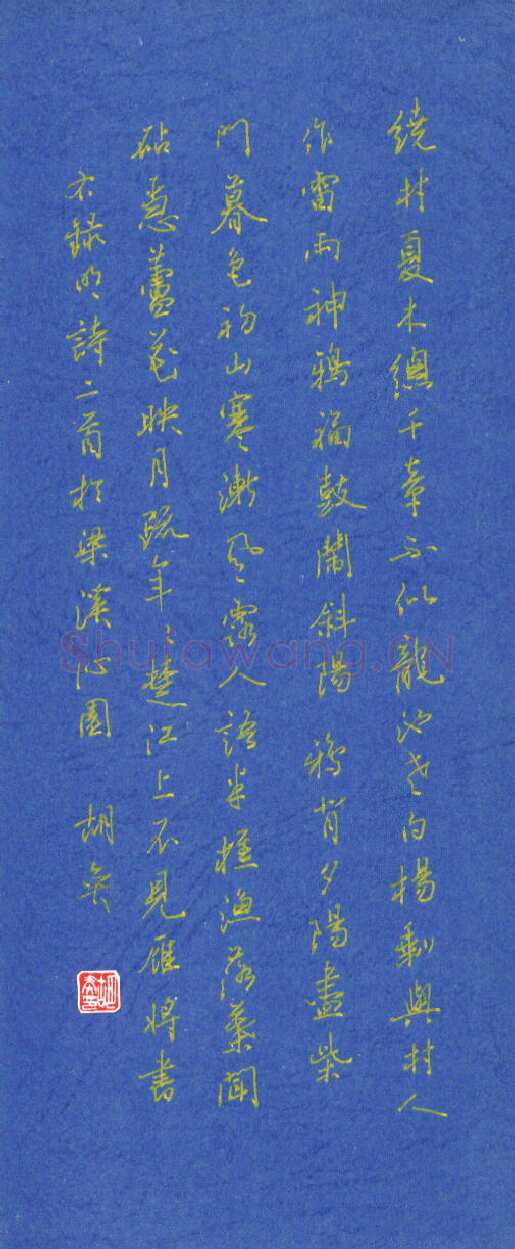 繞村夏木總千章不似龍池老白楊剩與村人
作雷雨神鴉福鼓鬧斜陽 鴉背夕陽盡柴
門暮色初山寒漸風露人語半樵漁落葉聞
砧急蘆花映月疏年々楚江上不見雁將書
右錄明詩二首於梁溪沁園 胡奕
Shufawang.CN